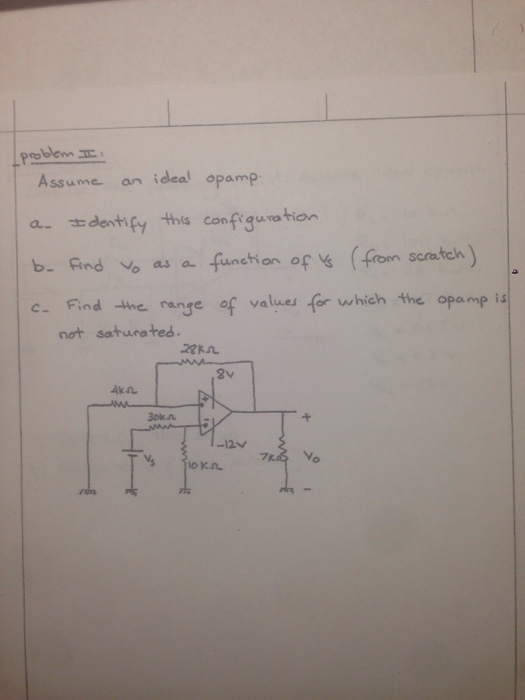 problem II:
Assume an ideal opamp.
a- Identify this configuration
b- Find Vo as a function of Vs (from scratch)
c- Find the range of values for which the opamp is
not saturated.
28KΩ
8V
4KΩ
+
30KΩ
-
+
-12V
Vs
10KΩ
7KΩ
Vo
-